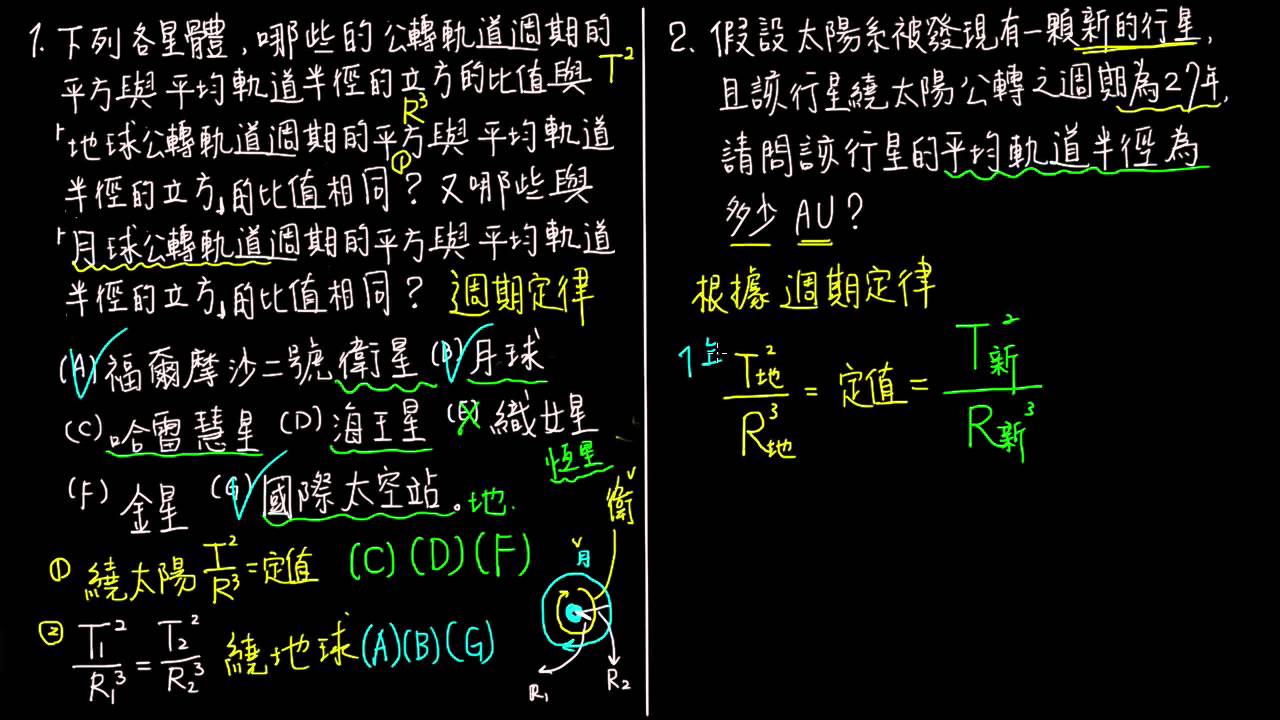 1. 下列各星體,哪些的公轉軌道週期的
平方與平均軌道半徑的立方的比值與 T²
R³
「地球公轉軌道週期的平方與平均軌道
半徑的立方」的比值相同?又哪些與
①
「月球公轉軌道週期的平方與平均軌道
半徑的立方」的比值相同? 週期定律
(A) 福爾摩沙二號衛星 (B) 月球
(C) 哈雷慧星 (D) 海王星 (E) 織女星
恆星
(F) 金星 (G) 國際太空站。地.
衛
月
① 繞太陽 T²/R³ = 定值 (C)(D)(F)
② T₁²/R₁³ = T₂²/R₂³ 繞地球 (A)(B)(G)
R₁ R₂
2. 假設太陽系被發現有一顆新的行星,
且該行星繞太陽公轉之週期為27年,
請問該行星的平均軌道半徑為
多少 AU?
根據週期定律
1
T地²/R地³ = 定值 = T新²/R新³